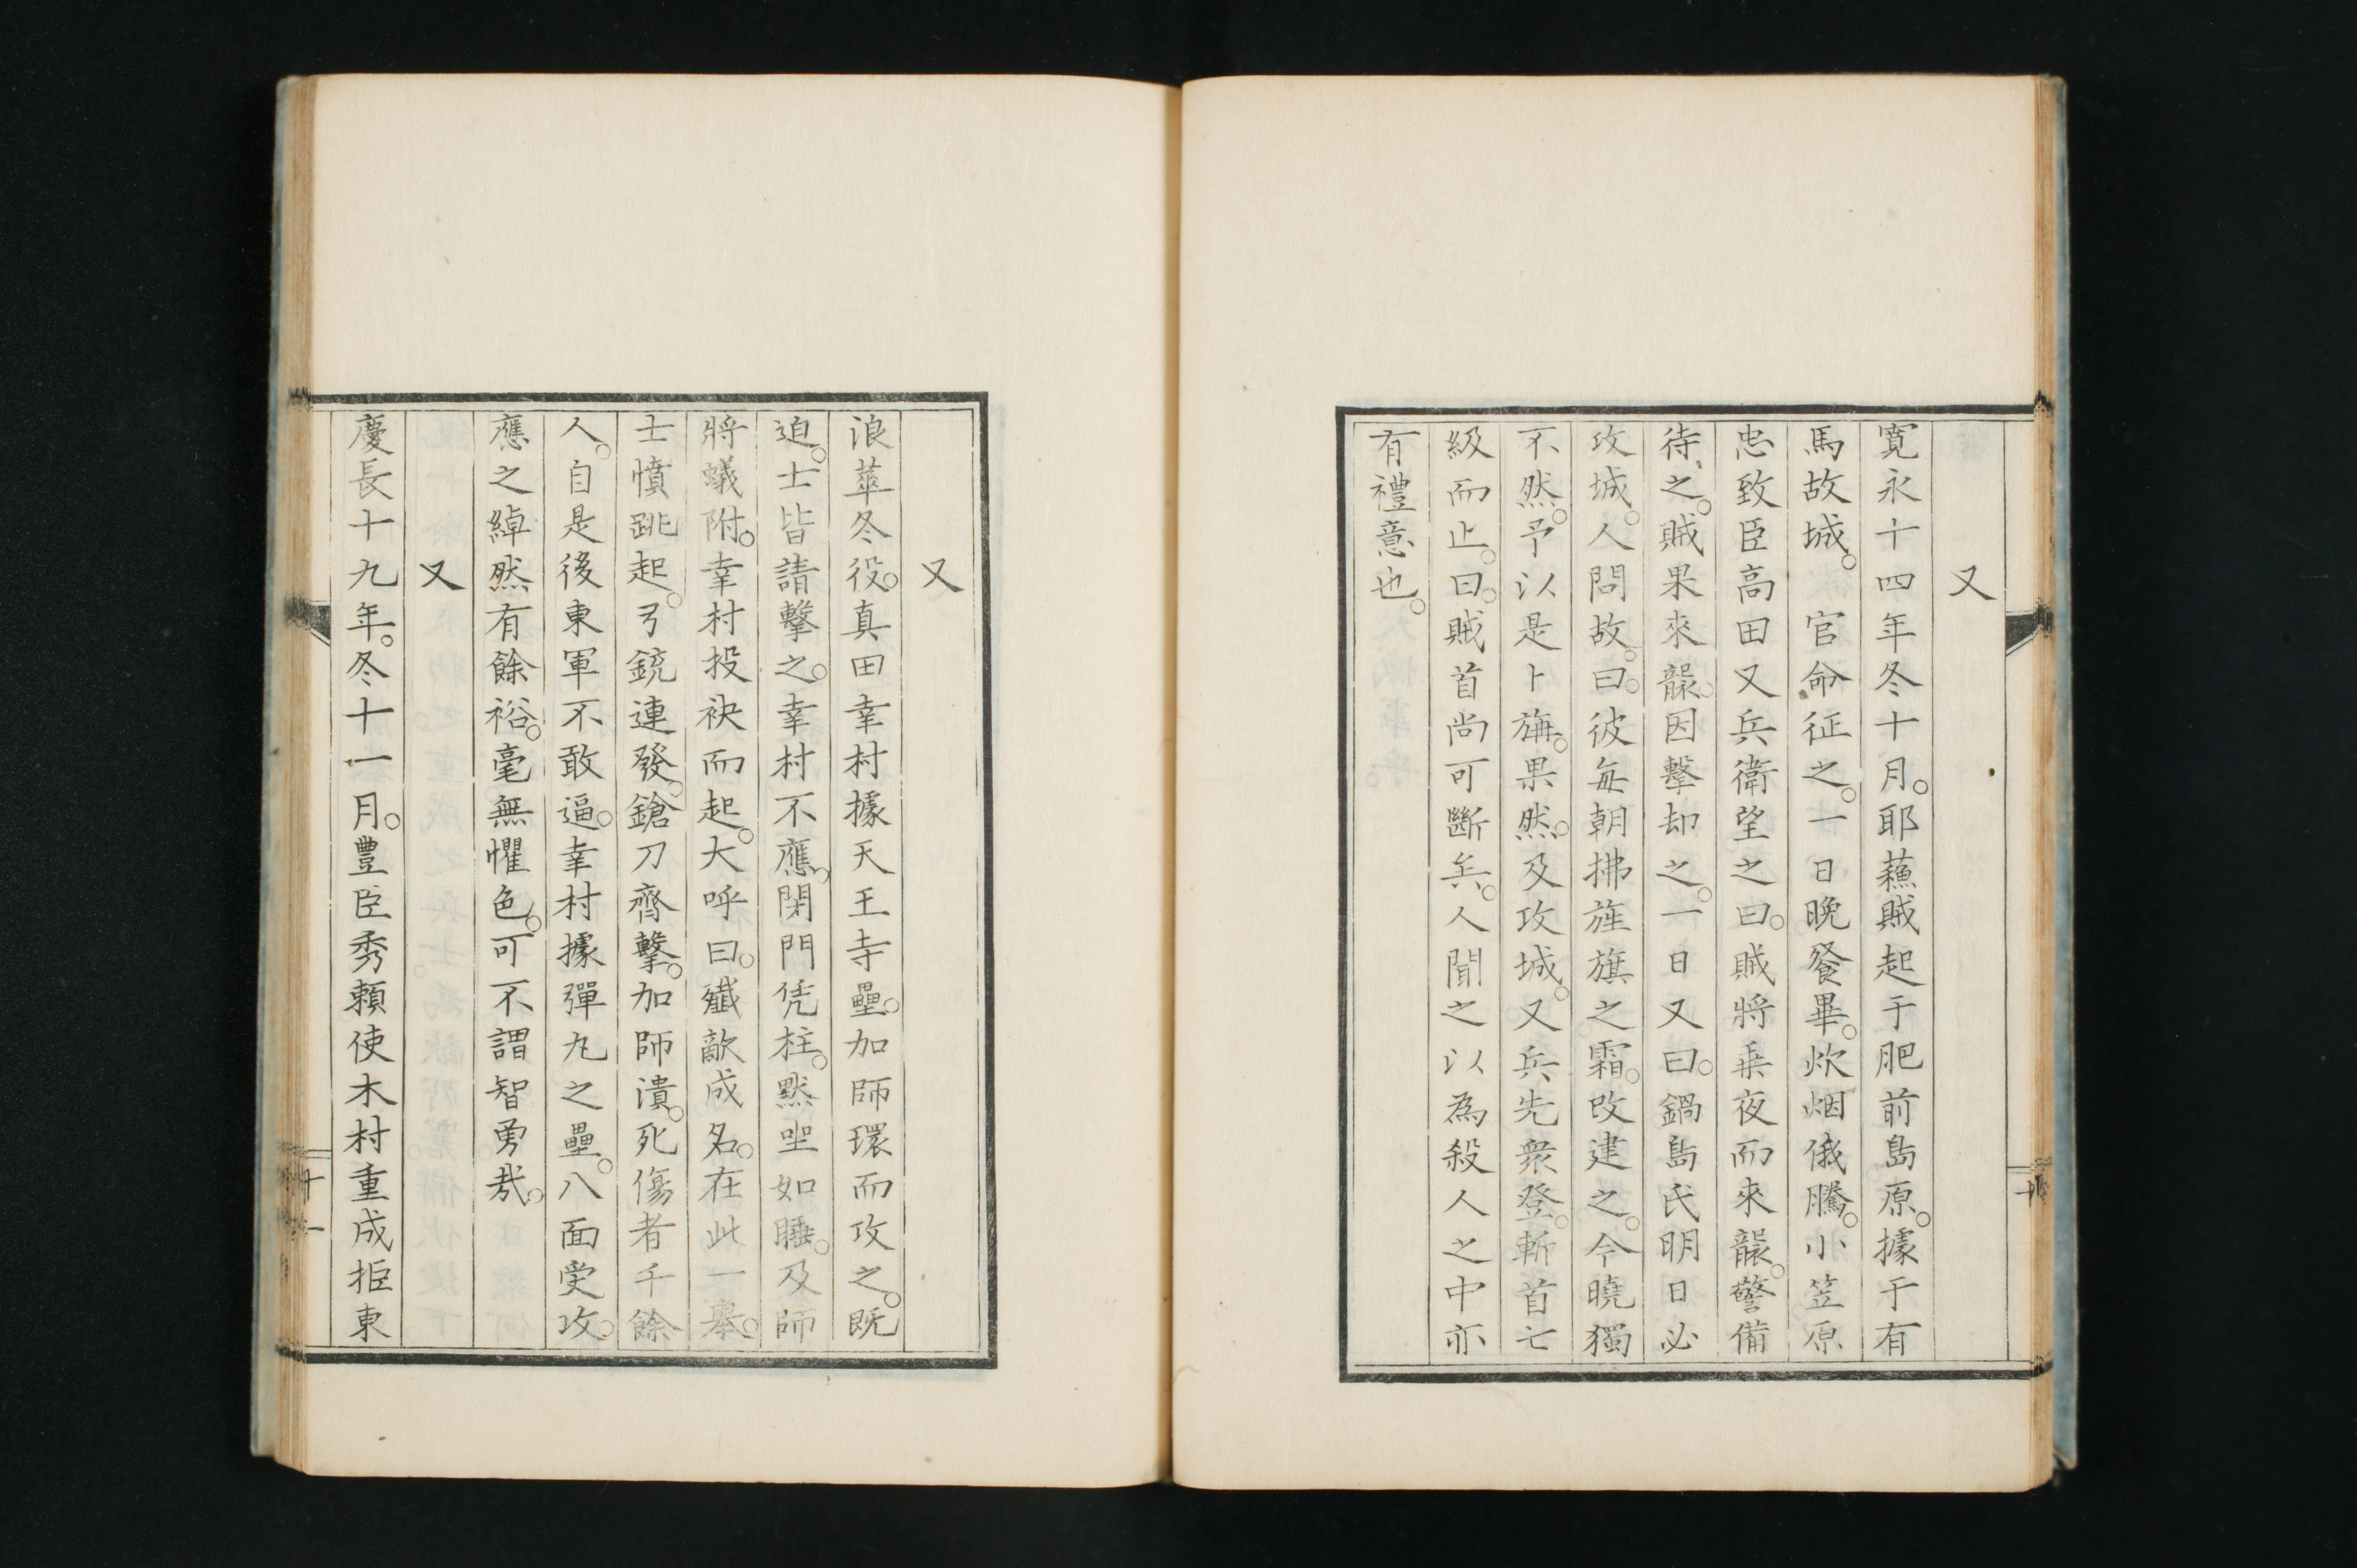 又
寛永十四年冬十月。耶蘓賊起于肥前島原。據于有
馬故城。官命征之。一日晚餐畢。炊烟俄騰。小笠原
忠致臣高田又兵衛望之曰。賊將乗夜而來襲。警備
待之。賊果來襲。因擊却之。一日又曰。鍋島氏明日必
攻城。人問故。曰。彼每朝拂旌旗之霜。改建之。今曉獨
不然。予以是卜旃。果然。及攻城。又兵先衆登。斬首七
級而止。曰。賊首尚可斷矣。人聞之以為殺人之中亦
有禮意也。
十
又
浪華冬役。真田幸村據天王寺壘。加師環而攻之。既
迫。士皆請擊之。幸村不應。閉門凭柱。黙坐如睡。及師
將蟻附。幸村投袂而起。大呼曰。殲敵成名。在此一舉。
士憤跳起。弓銃連發。鎗刀齊擊。加師潰。死傷者千餘
人。自是後東軍不敢逼。幸村據彈丸之壘。八面受攻。
應之綽然有餘裕。毫無懼色。可不謂智勇哉。
又
慶長十九年。冬十一月。豊臣秀頼使木村重成拒東
十一